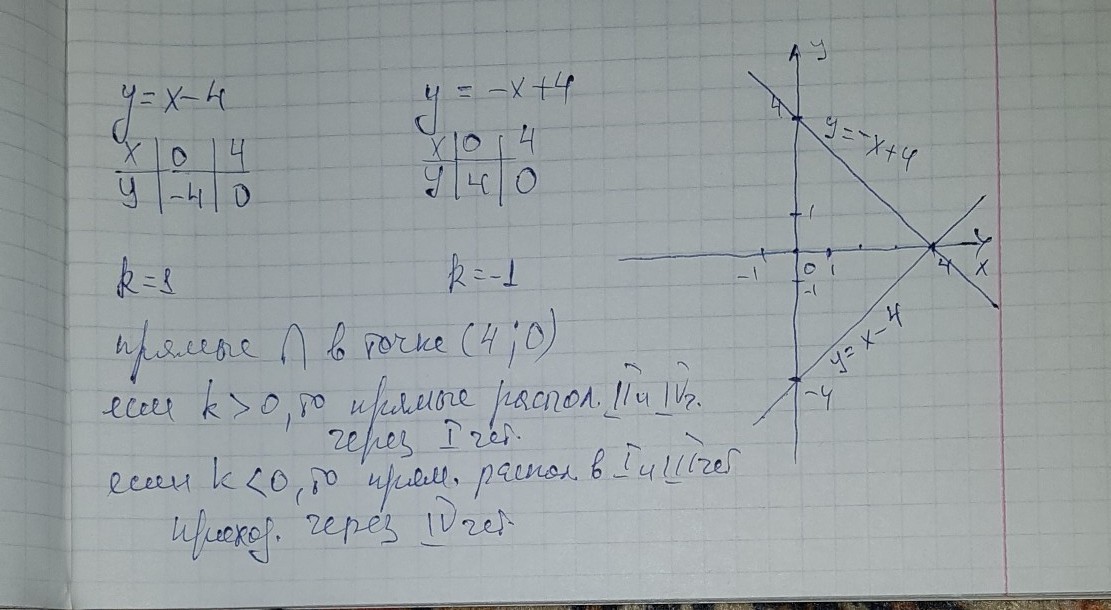 y = x - 4
x | 0 | 4
y | -4 | 0
k = 1
y = -x + 4
x | 0 | 4
y | 4 | 0
k = -1
прямые ∩ в точке (4; 0)
если k > 0, то прямые распол. II и IV ч.
через I чет.
если k < 0, то прям. распол в I и III чет
проход. через IV чет.
y
4
y = -x + 4
1
-1
0
1
4
x
-1
y = x - 4
-4